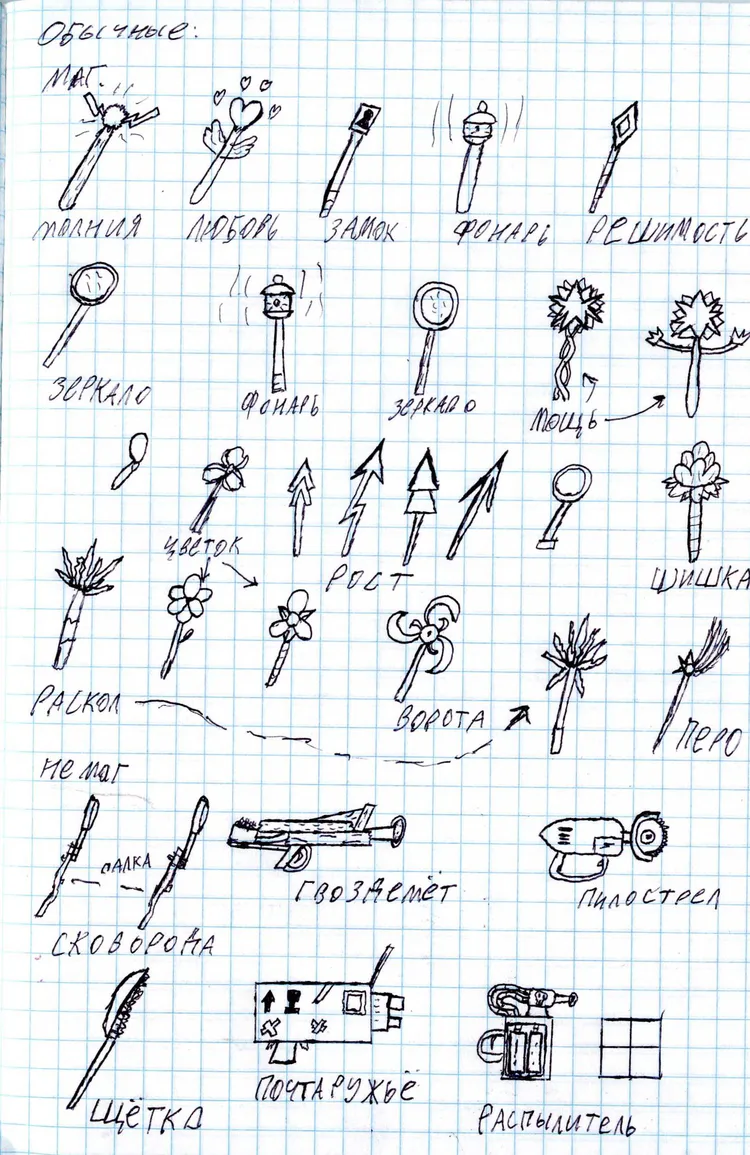 Обычные:
МАГ.
МОЛНИЯ ЛЮБОВЬ ЗАМОК ФОНАРЬ РЕШИМОСТЬ
ЗЕРКАЛО ФОНАРЬ ЗЕРКАЛО МОЩЬ
ЦВЕТОК РОСТ ШИШКА
РАСКОЛ ВОРОТА ПЕРО
НЕ МАГ
ПАЛКА
СКОВОРОДА ГВОЗДЕМЁТ ПИЛОСТРЕЛ
ЩЁТКА ПОЧТАРУЖЬЁ РАСПЫЛИТЕЛЬ